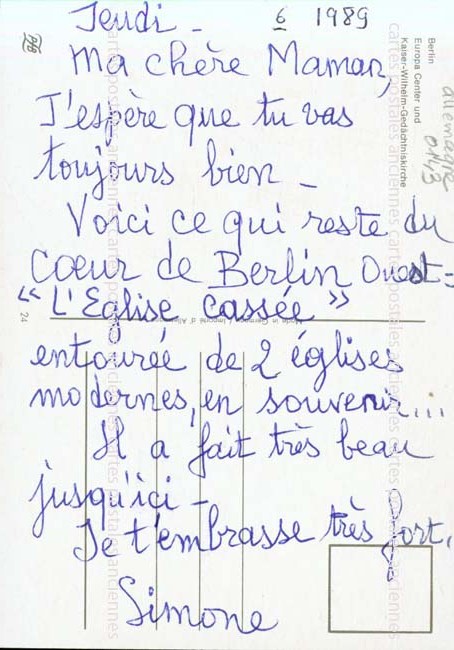 Jeudi - 6 1989
Ma chère Maman,
J'espère que tu vas
toujours bien -
Voici ce qui reste du
coeur de Berlin Ouest =
"L'Eglise cassée"
entourée de 2 églises
modernes, en souvenir...
Il a fait très beau
jusqu'ici -
Je t'embrasse très fort,
Simone
Berlin
Europa Center und
Kaiser-Wilhelm-Gedächtniskirche
allemagne
24
cartes postales anciennes